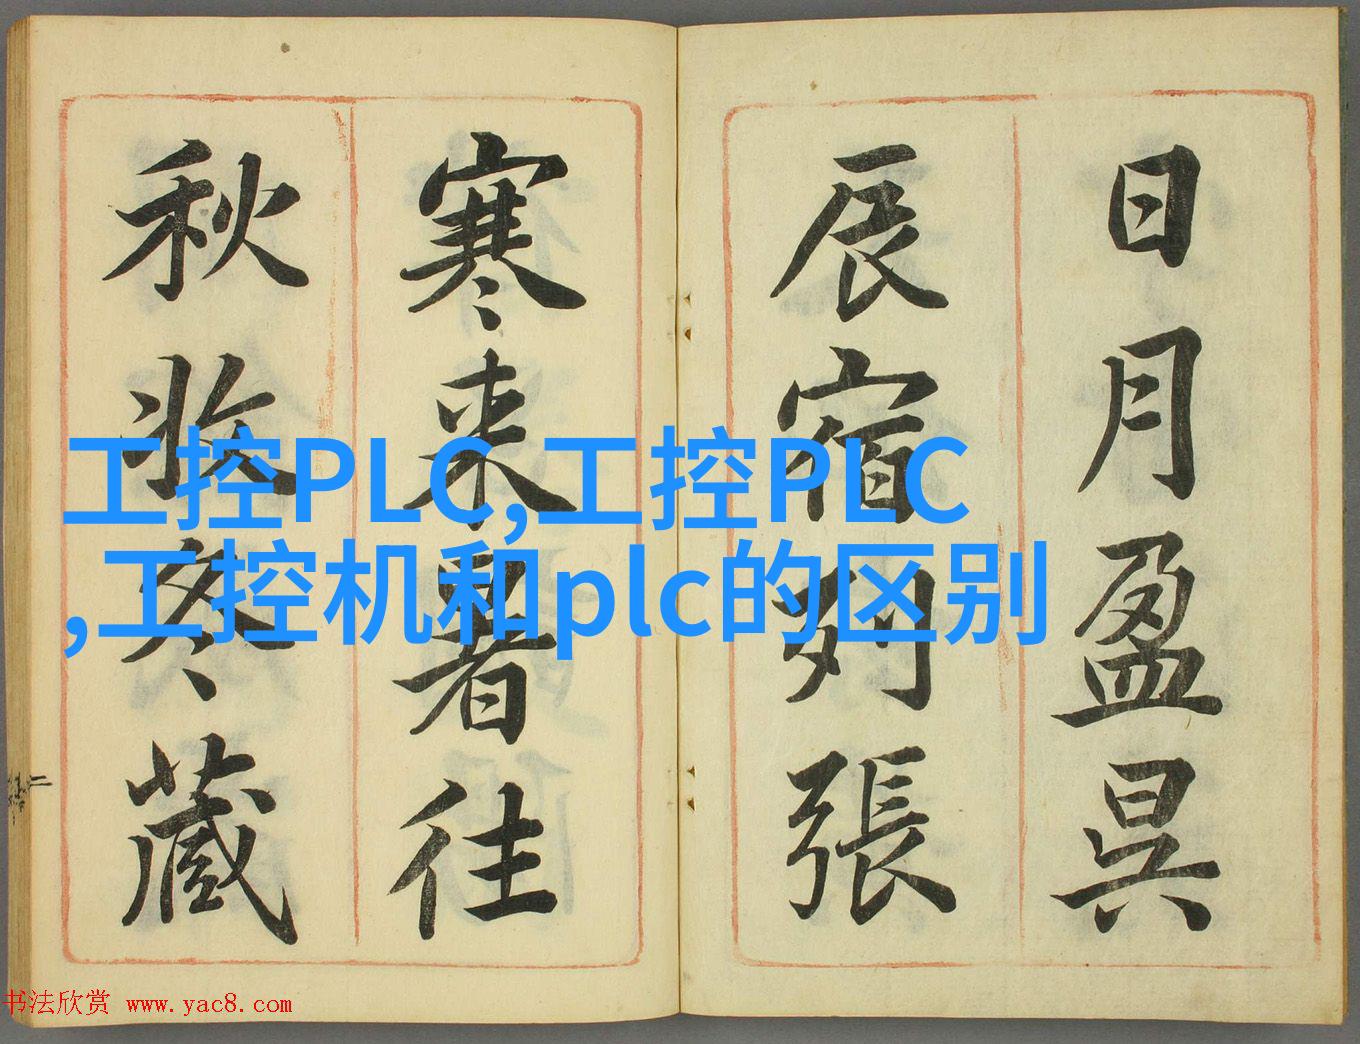 日月盈昃
辰宿列張
寒来暑往
秋收冬藏
工控PLC,工控PLC
,工控机和plc的区别
二
书法欣赏 www.yac8.com